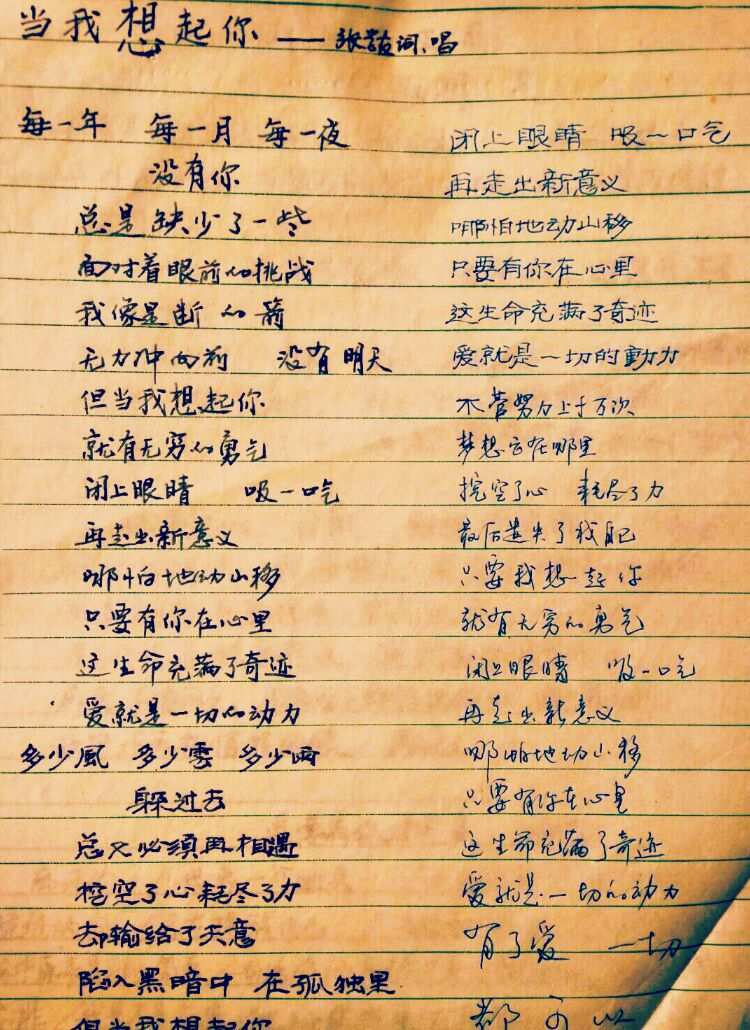 当我想起你 —— 张喆词、唱
每一年 每一月 每一夜
没有你
总是缺少了一些
面对着眼前的挑战
我像是断的箭
无力冲向前 没有明天
但当我想起你
就有无穷的勇气
闭上眼睛 吸一口气
再走出新意义
哪怕地动山移
只要有你在心里
这生命充满了奇迹
爱就是一切的动力
多少風 多少雲 多少雨
躲过去
总又必须再相遇
挖空了心耗尽了力
却输给了天意
陷入黑暗中 在孤独里
但当我想起你
闭上眼睛 吸一口气
再走出新意义
哪怕地动山移
只要有你在心里
这生命充满了奇迹
爱就是一切的動力
不管努力上千万次
梦想会在哪里
挖空了心 耗尽了力
最后迷失了我自己
只要我想起你
就有无穷的勇气
闭上眼睛 吸一口气
再走出新意义
哪怕地动山移
只要有你在心里
这生命充满了奇迹
爱就是一切的动力
有了爱 一切
都可以